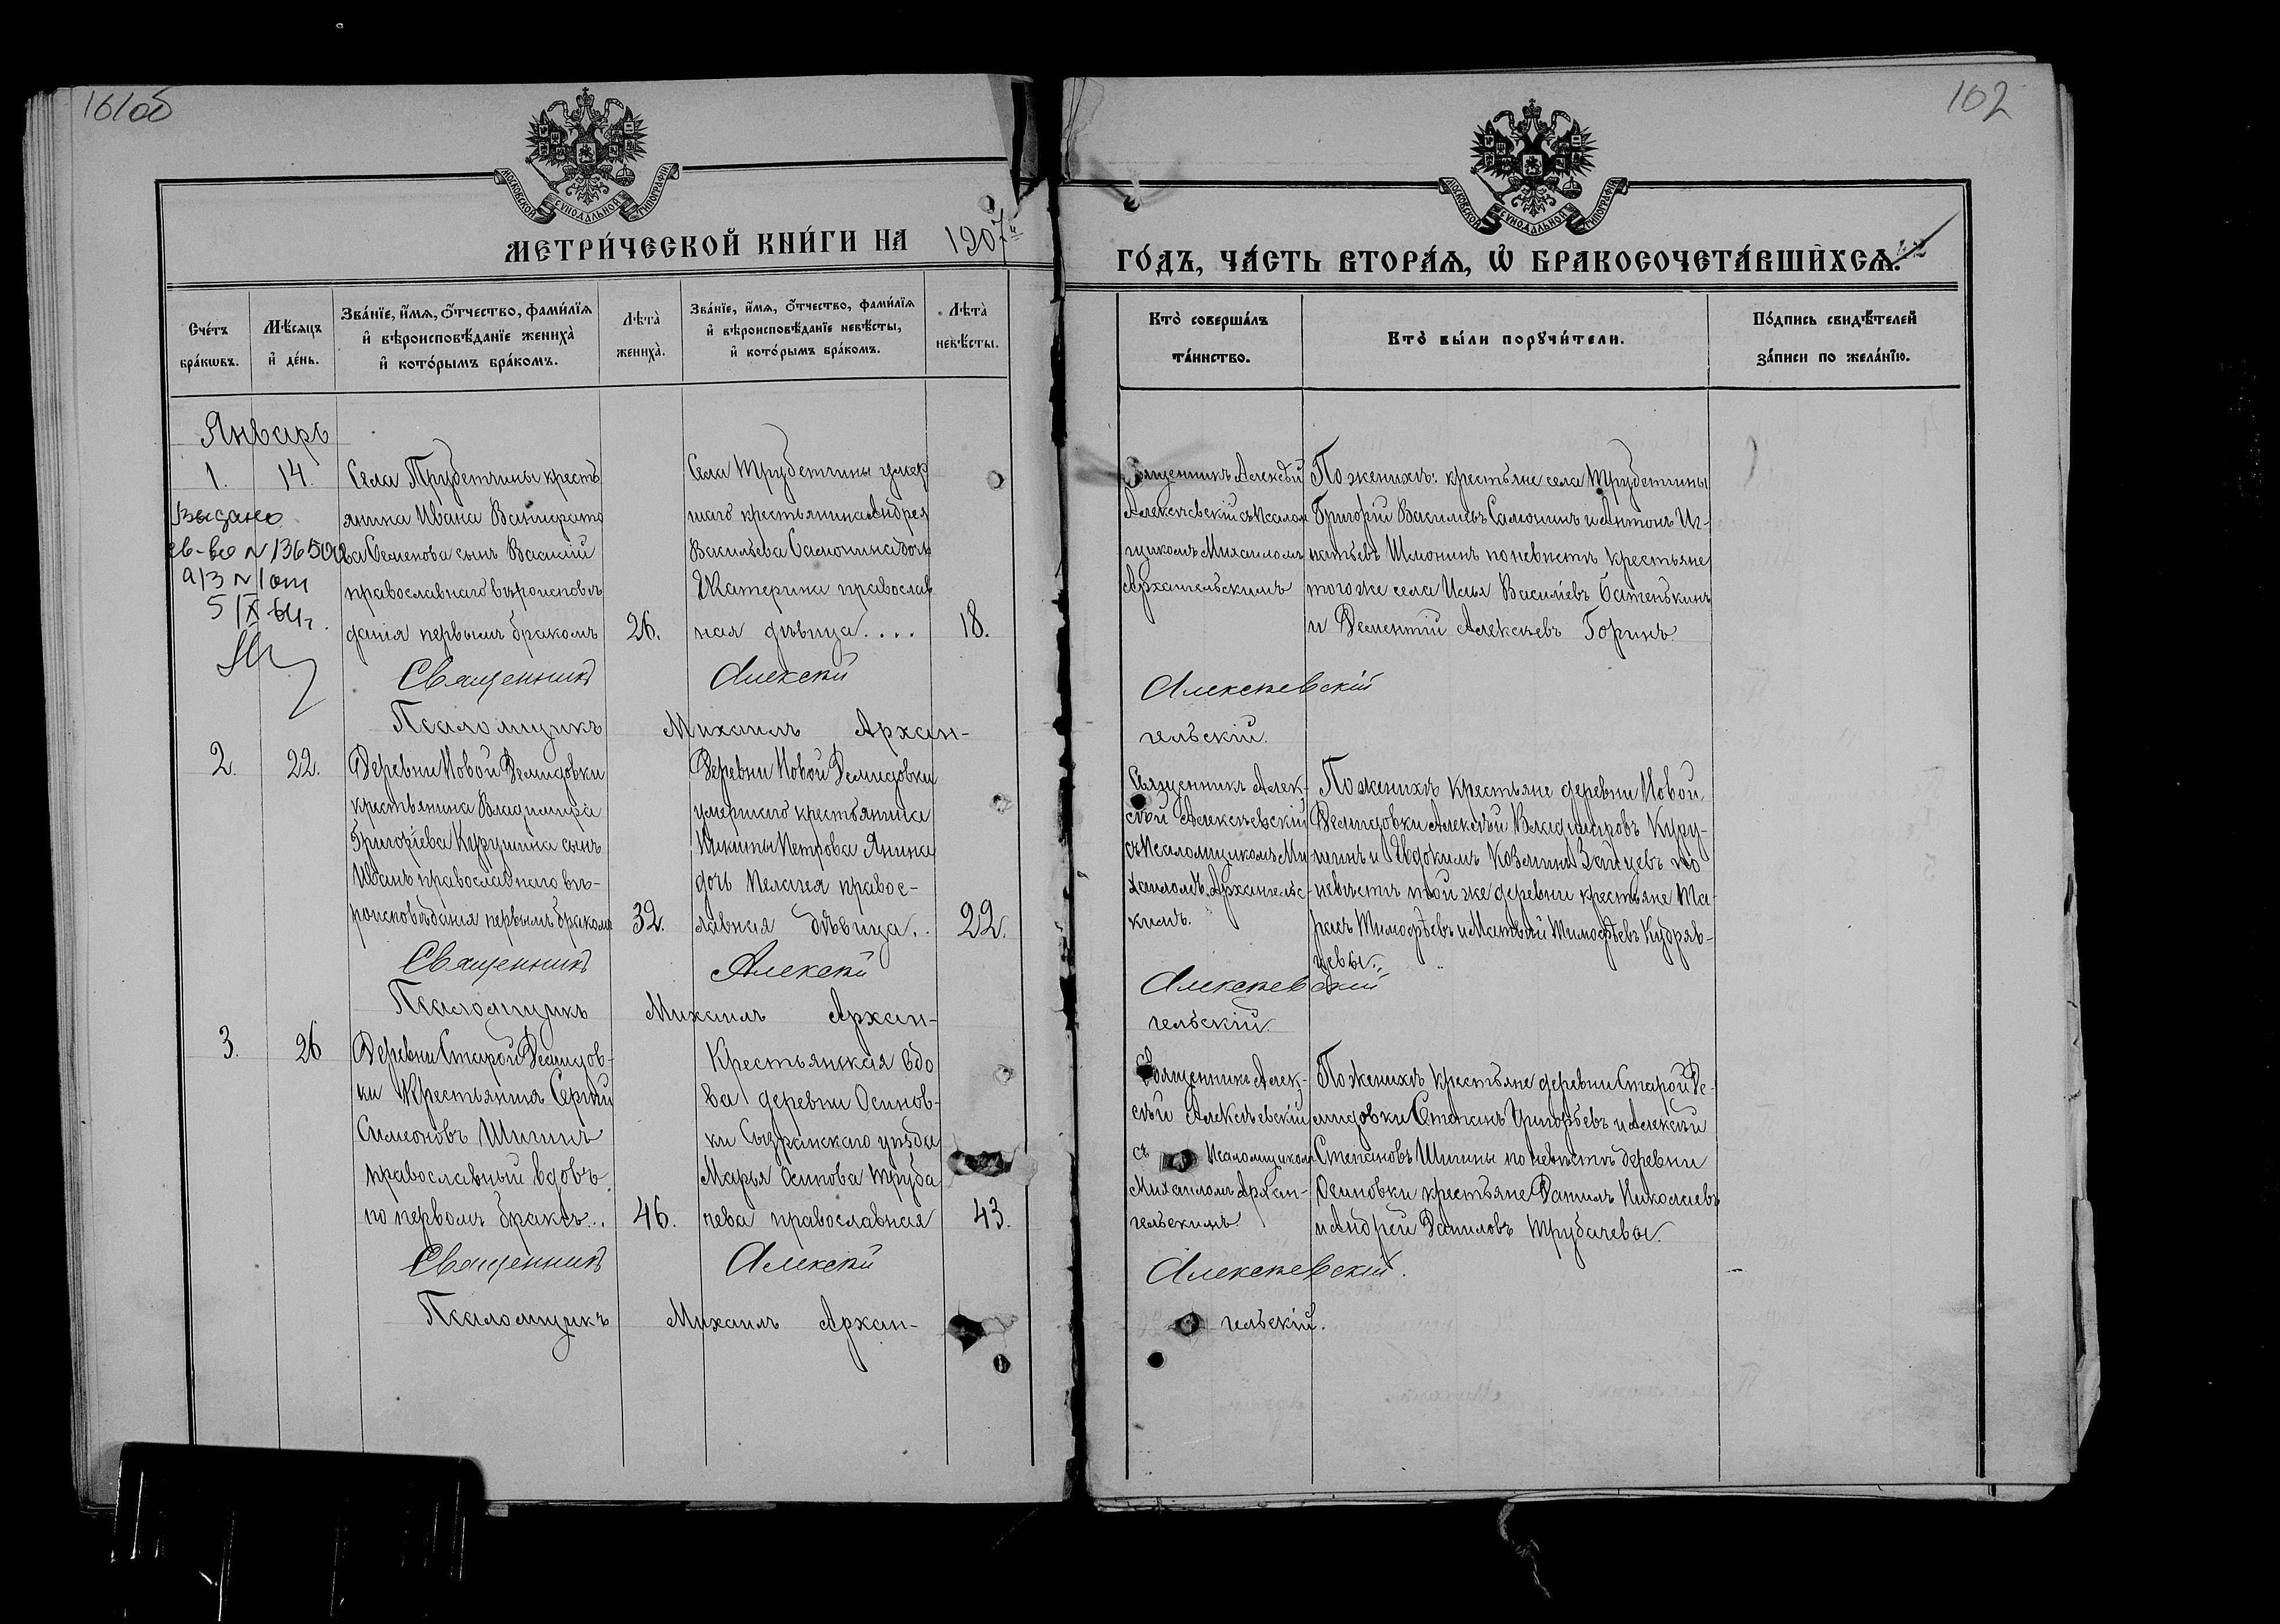 101об
102
МОСКОВСКОЙ СѴНОДАЛЬНОЙ ТИПОГРАФІИ
МОСКОВСКОЙ СѴНОДАЛЬНОЙ ТИПОГРАФІИ
МЕТРИ́ЧЕСКОЙ КНИ́ГИ НА 1907й
ГО́ДЪ, ЧА́СТЬ ВТОРА́Я, Ѡ БРАКОСОЧЕТА́ВШИХСѦ.
Сче́тъ бра́кѡвъ.
Мѣ́сяцъ и де́нь.
Зва́нїе, и́мѧ, ѻ҆́тчество, фами́лїѧ
и вѣроисповѣ́данїе жениха̀
и кото́рымъ бра́комъ.
Лѣта̀
жениха̀.
Зва́нїе, и́мѧ, ѻ҆́тчество, фами́лїѧ
и вѣроисповѣ́данїе невѣ́сты,
и кото́рымъ бра́комъ.
Лѣта̀
невѣ́сты.
Кто̀ соверша́лъ
та́инство.
Кто̀ бы́ли порꙋчи́тели.
По́дпись свидѣ́телей
за́писи по жела́нїю.
Январь
1. 14.
Выдано
св-во N
а/з N 1 от
Села Трубетчины кресть
янина Ивана
Семенова сынъ Василій
православнаго вѣроисповѣ
данія первымъ бракомъ
26.
Села Трубетчины умер
шаго крестьянина Андрея
Васильева Самонина дочь
Екатерина православ
ная дѣвица....
18.
Священникъ Алексѣй
Алексѣевскій съ псалом
щикомъ Михаиломъ
Архангельскимъ
По женихѣ: крестьяне села Трубетчины
Григорій Васильевъ Самонинъ и Антонъ Иг-
натьевъ Шмонинъ по невѣстѣ крестьяне
того же села Илья Василіевъ Батенькинъ
и Дементій Алексѣевъ Горинъ.
Священникъ Алексѣй Алексѣевскій
Псаломщикъ Михаилъ Архан-
гельскій.
2. 22.
Деревни Новой Демидовки
крестьянина Владиміра
Григоріева Курушина сынъ
Иванъ православнаго вѣ-
роисповѣданія первымъ бракомъ
32.
Деревни Новой Демидовки
умершаго крестьянина
Никиты Петрова Янина
дочь Пелагея правос-
лавная дѣвица..
22.
Священникъ Алек-
сѣй Алексѣевскій
съ псаломщикомъ Ми
хаиломъ Архангельс-
кимъ.
По женихѣ крестьяне деревни Новой
Демидовки Алексѣй Владиміровъ Куру-
шинъ и Евдокимъ Козминъ Зайцевъ по
невѣстѣ той же деревни крестьяне Та-
расъ Тимофѣевъ и Матвѣй Тимофѣевъ Кудряв-
цевы.
Священникъ Алексѣй Алексѣевскій
Псаломщикъ Михаилъ Архан-
гельскій
3. 26
Деревни Старой Демидов-
ки крестьянинъ Сергій
Симеоновъ Шишинъ
православный вдовъ
по первомъ бракѣ...
46.
Крестьянская вдо
ва деревни Осинов-
ки Сызранскаго уѣзда
Марья Осипова Труба
чева православная
43.
Священникъ Алек-
сѣй Алексѣевскій
съ псаломщикомъ
Михаиломъ Архан-
гельскимъ
По женихѣ крестьяне деревни Старой Де-
мидовки Степанъ Григорьевъ и Алексѣй
Степановъ Шишины по невѣстѣ деревни
Осиновки крестьяне Даниилъ Николаевъ
и Андрей Даниловъ Трубачевы.
Священникъ Алексѣй Алексѣевскій.
Псаломщикъ Михаилъ Архан-
гельскій.